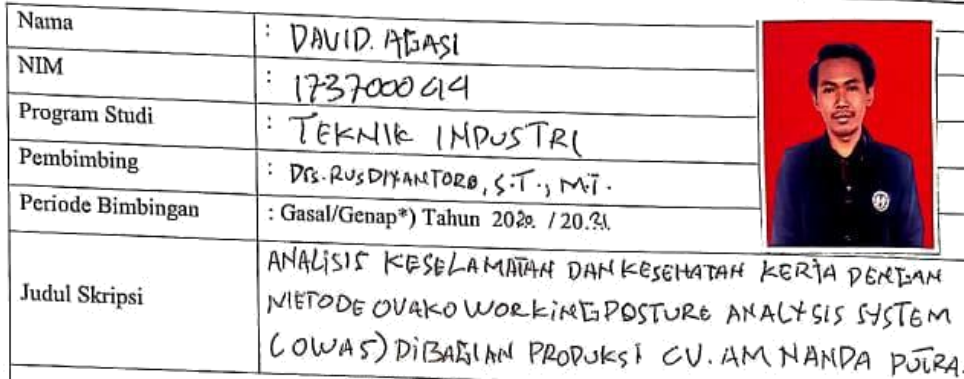 Nama : DAVID. AGASI
NIM : 173700044
Program Studi : TEKNIK INDUSTRI
Pembimbing : Drs. RUSDIYANTORO, S.T., M.T.
Periode Bimbingan : Gasal/Genap*) Tahun 2020. / 20.21.
Judul Skripsi
ANALISIS KESELAMATAN DAN KESEHATAN KERJA DENGAN
METODE OVAKO WORKING POSTURE ANALYSIS SYSTEM
(OWAS) DIBAGIAN PRODUKSI CV. AM NANDA PUTRA.